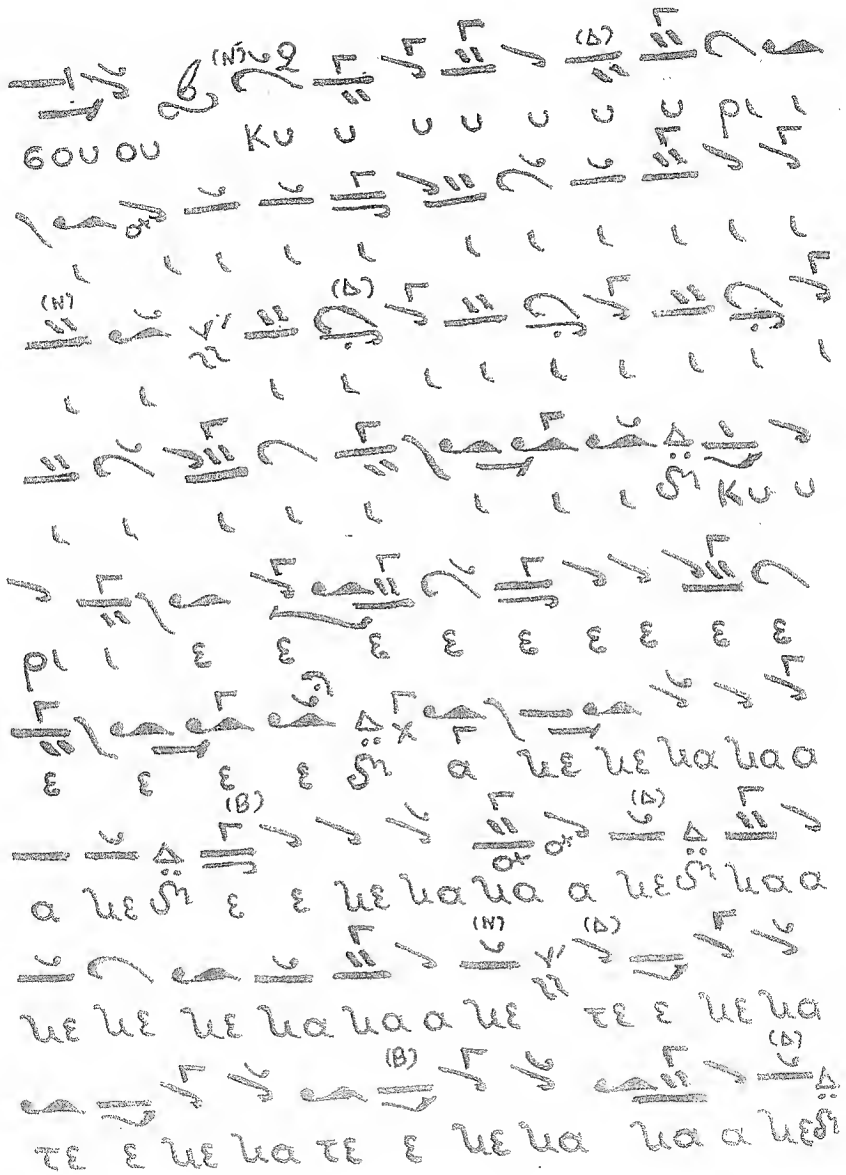 (Ν) (Δ)
σου ου Κυ υ υ υ υ υ υ ρι ι
ι ι ι ι ι ι ι ι ι ι ι
(Ν) (Δ)
ι ι ι ι ι ι ι ι ι ι ι
ι ι ι ι ι ι ι ι Κυ υ
ρι ι ε ε ε ε ε ε ε ε
ε ε ε ε α νε νε να να α
(Β) (Δ)
α νε ε ε νε να να α νε να α
(Ν) (Δ)
νε νε νε να να α νε τε ε νε να
(Β) (Δ)
τε ε νε να τε ε νε να να α νε